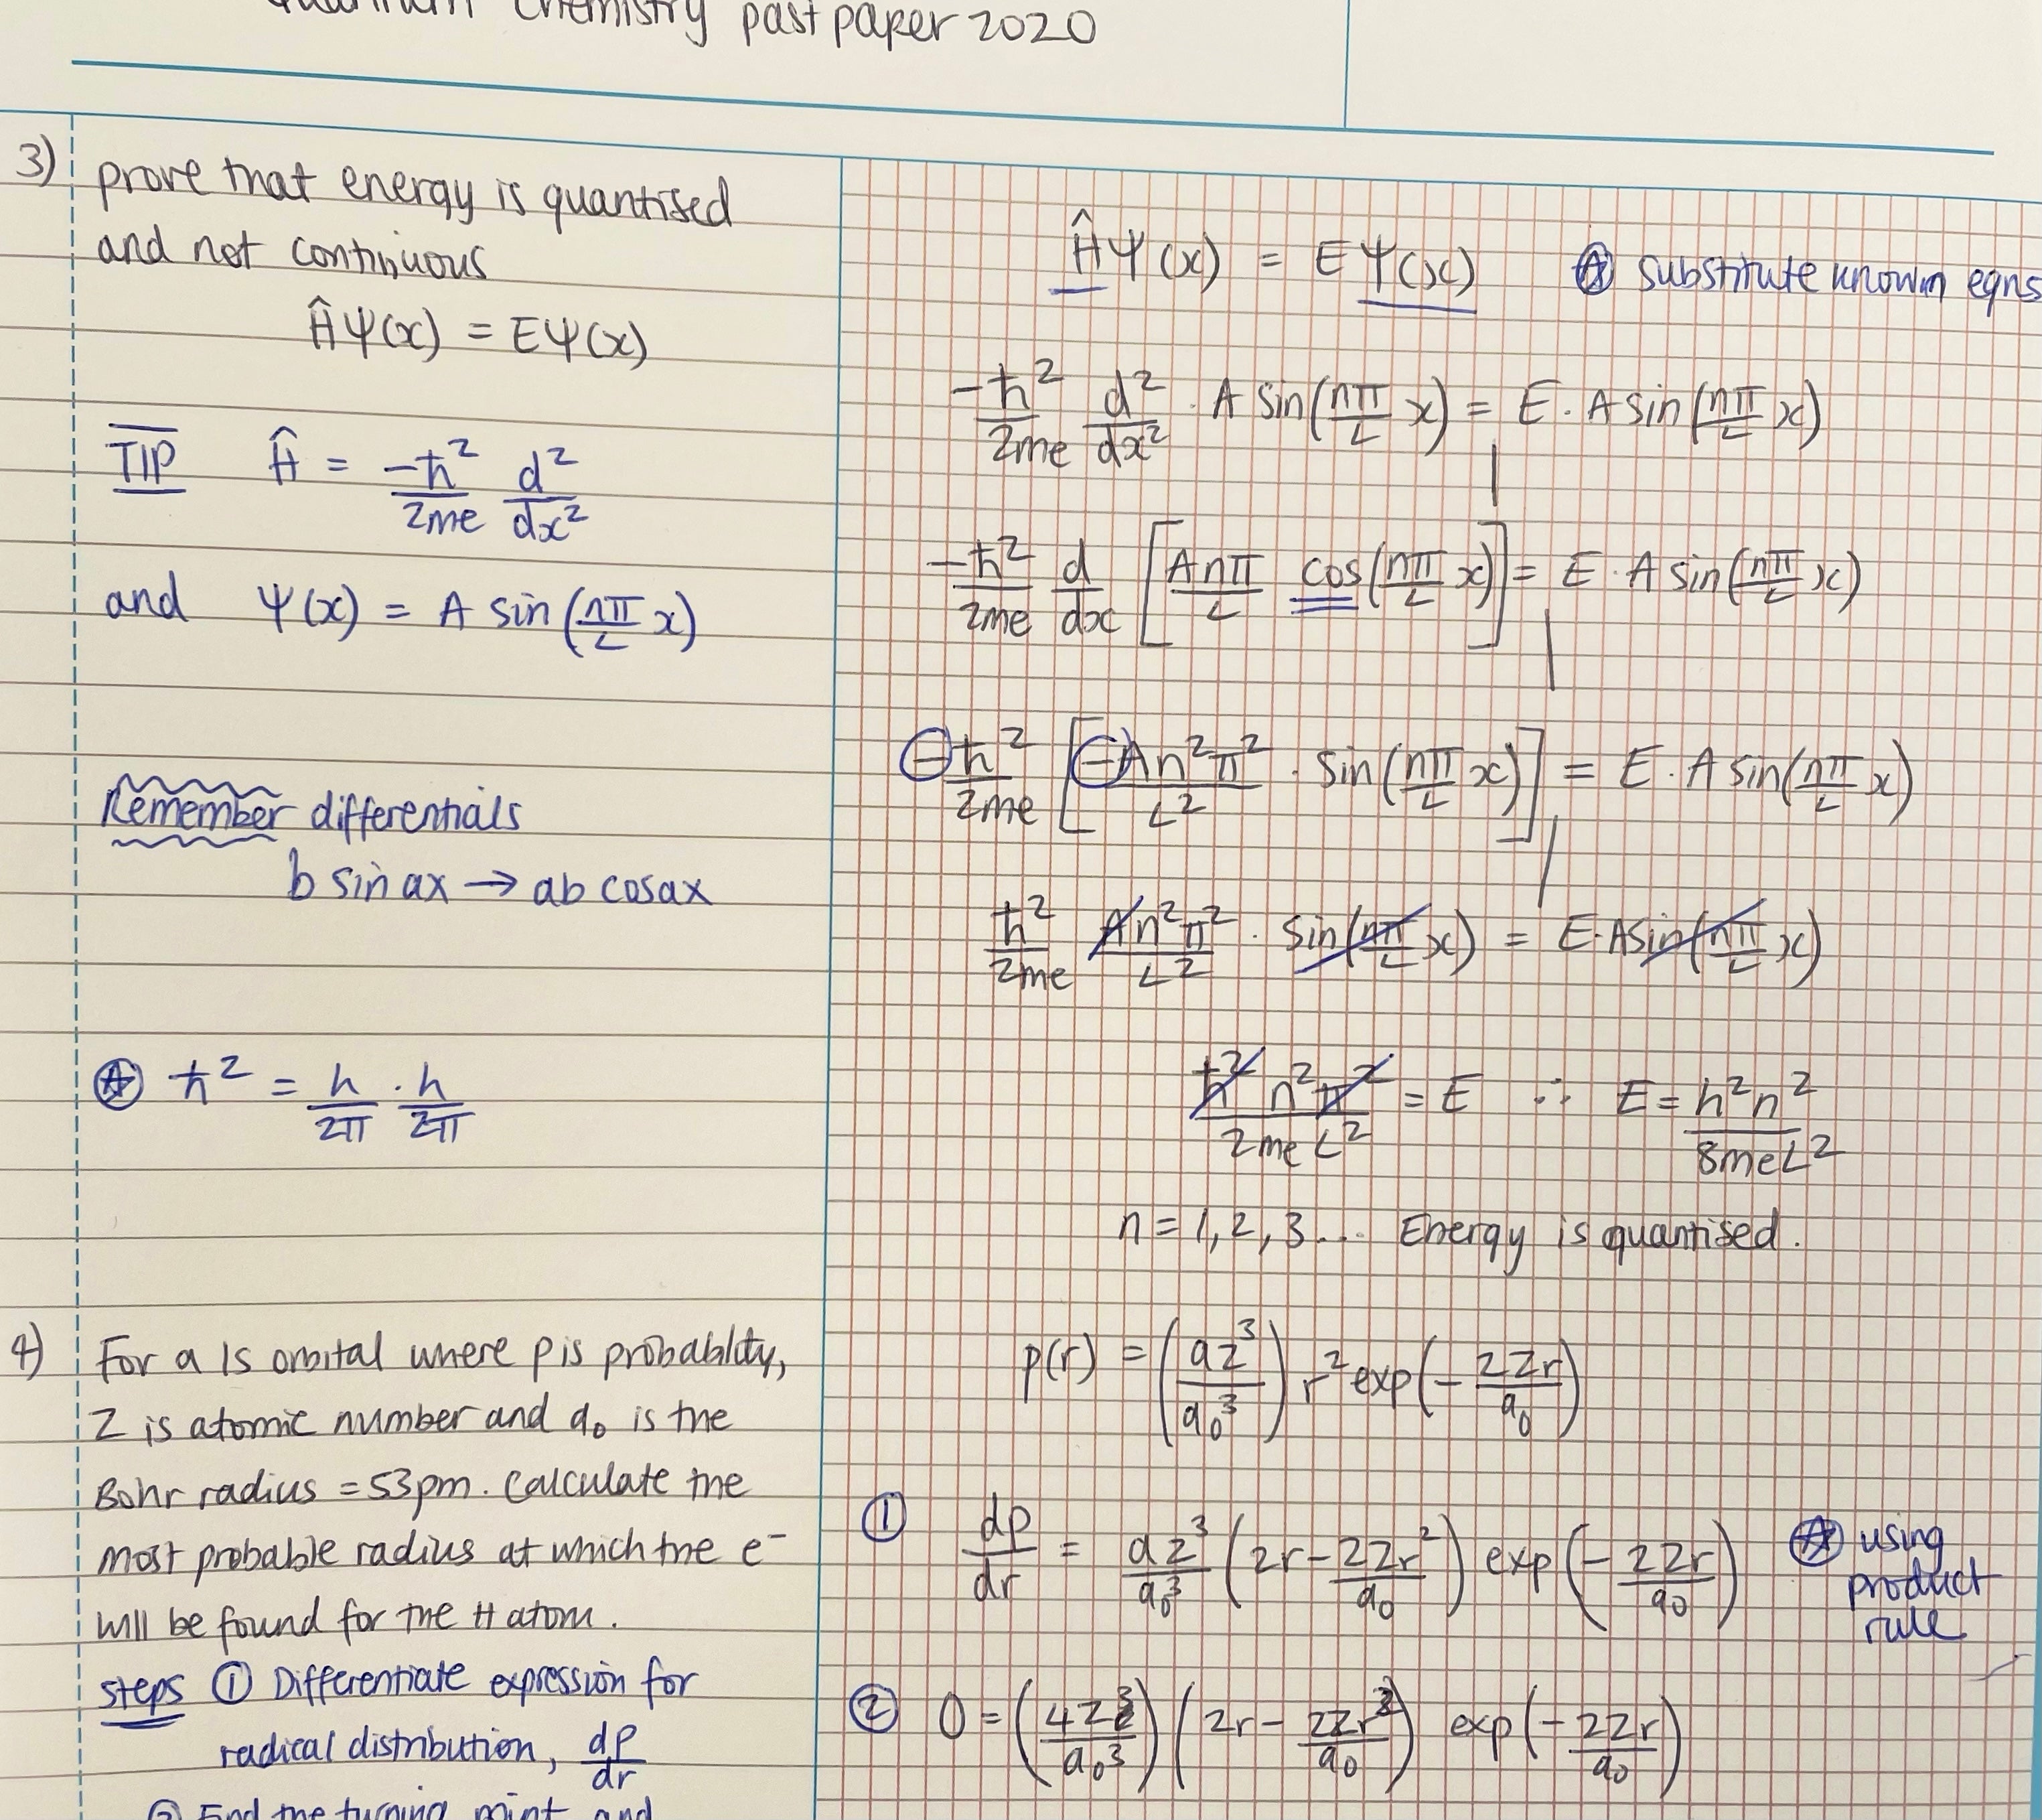 Quantum Chemistry past paper 2020
3) prove that energy is quantised
and not continuous
Ĥψ(x) = Eψ(x)
TIP Ĥ = -ħ²/2me d²/dx²
and ψ(x) = A sin(nπ/L x)
Remember differentials
b sin ax → ab cosax
⍟ ħ² = h/2π · h/2π
ĤΨ(x) = EΨ(x) ⍟ substitute known eqns
-ħ²/2me d²/dx² · A sin(nπ/L x) = E · A sin(nπ/L x)
-ħ²/2me d/dx [Anπ/L cos(nπ/L x)] = E · A sin(nπ/L x)
-ħ²/2me [-An²π²/L² · sin(nπ/L x)] = E · A sin(nπ/L x)
ħ²/2me An²π²/L² · sin(nπ/L x) = E · A sin(nπ/L x)
ħ²n²π²/2meL² = E ∴ E = h²n²/8meL²
n = 1, 2, 3... Energy is quantised.
4) For a 1s orbital where p is probability,
Z is atomic number and a₀ is the
Bohr radius = 53pm. Calculate the
most probable radius at which the e⁻
will be found for the H atom.
steps ① Differentiate expression for
radical distribution, dp/dr
② Find the turning point and
p(r) = (az³/a₀³) r² exp(-2Zr/a₀)
① dp/dr = az³/a₀³ (2r - 2Zr²/a₀) exp(-2Zr/a₀) ⍟ using
product
rule
② 0 = (4Z³/a₀³) (2r - 2Zr²/a₀) exp(-2Zr/a₀)